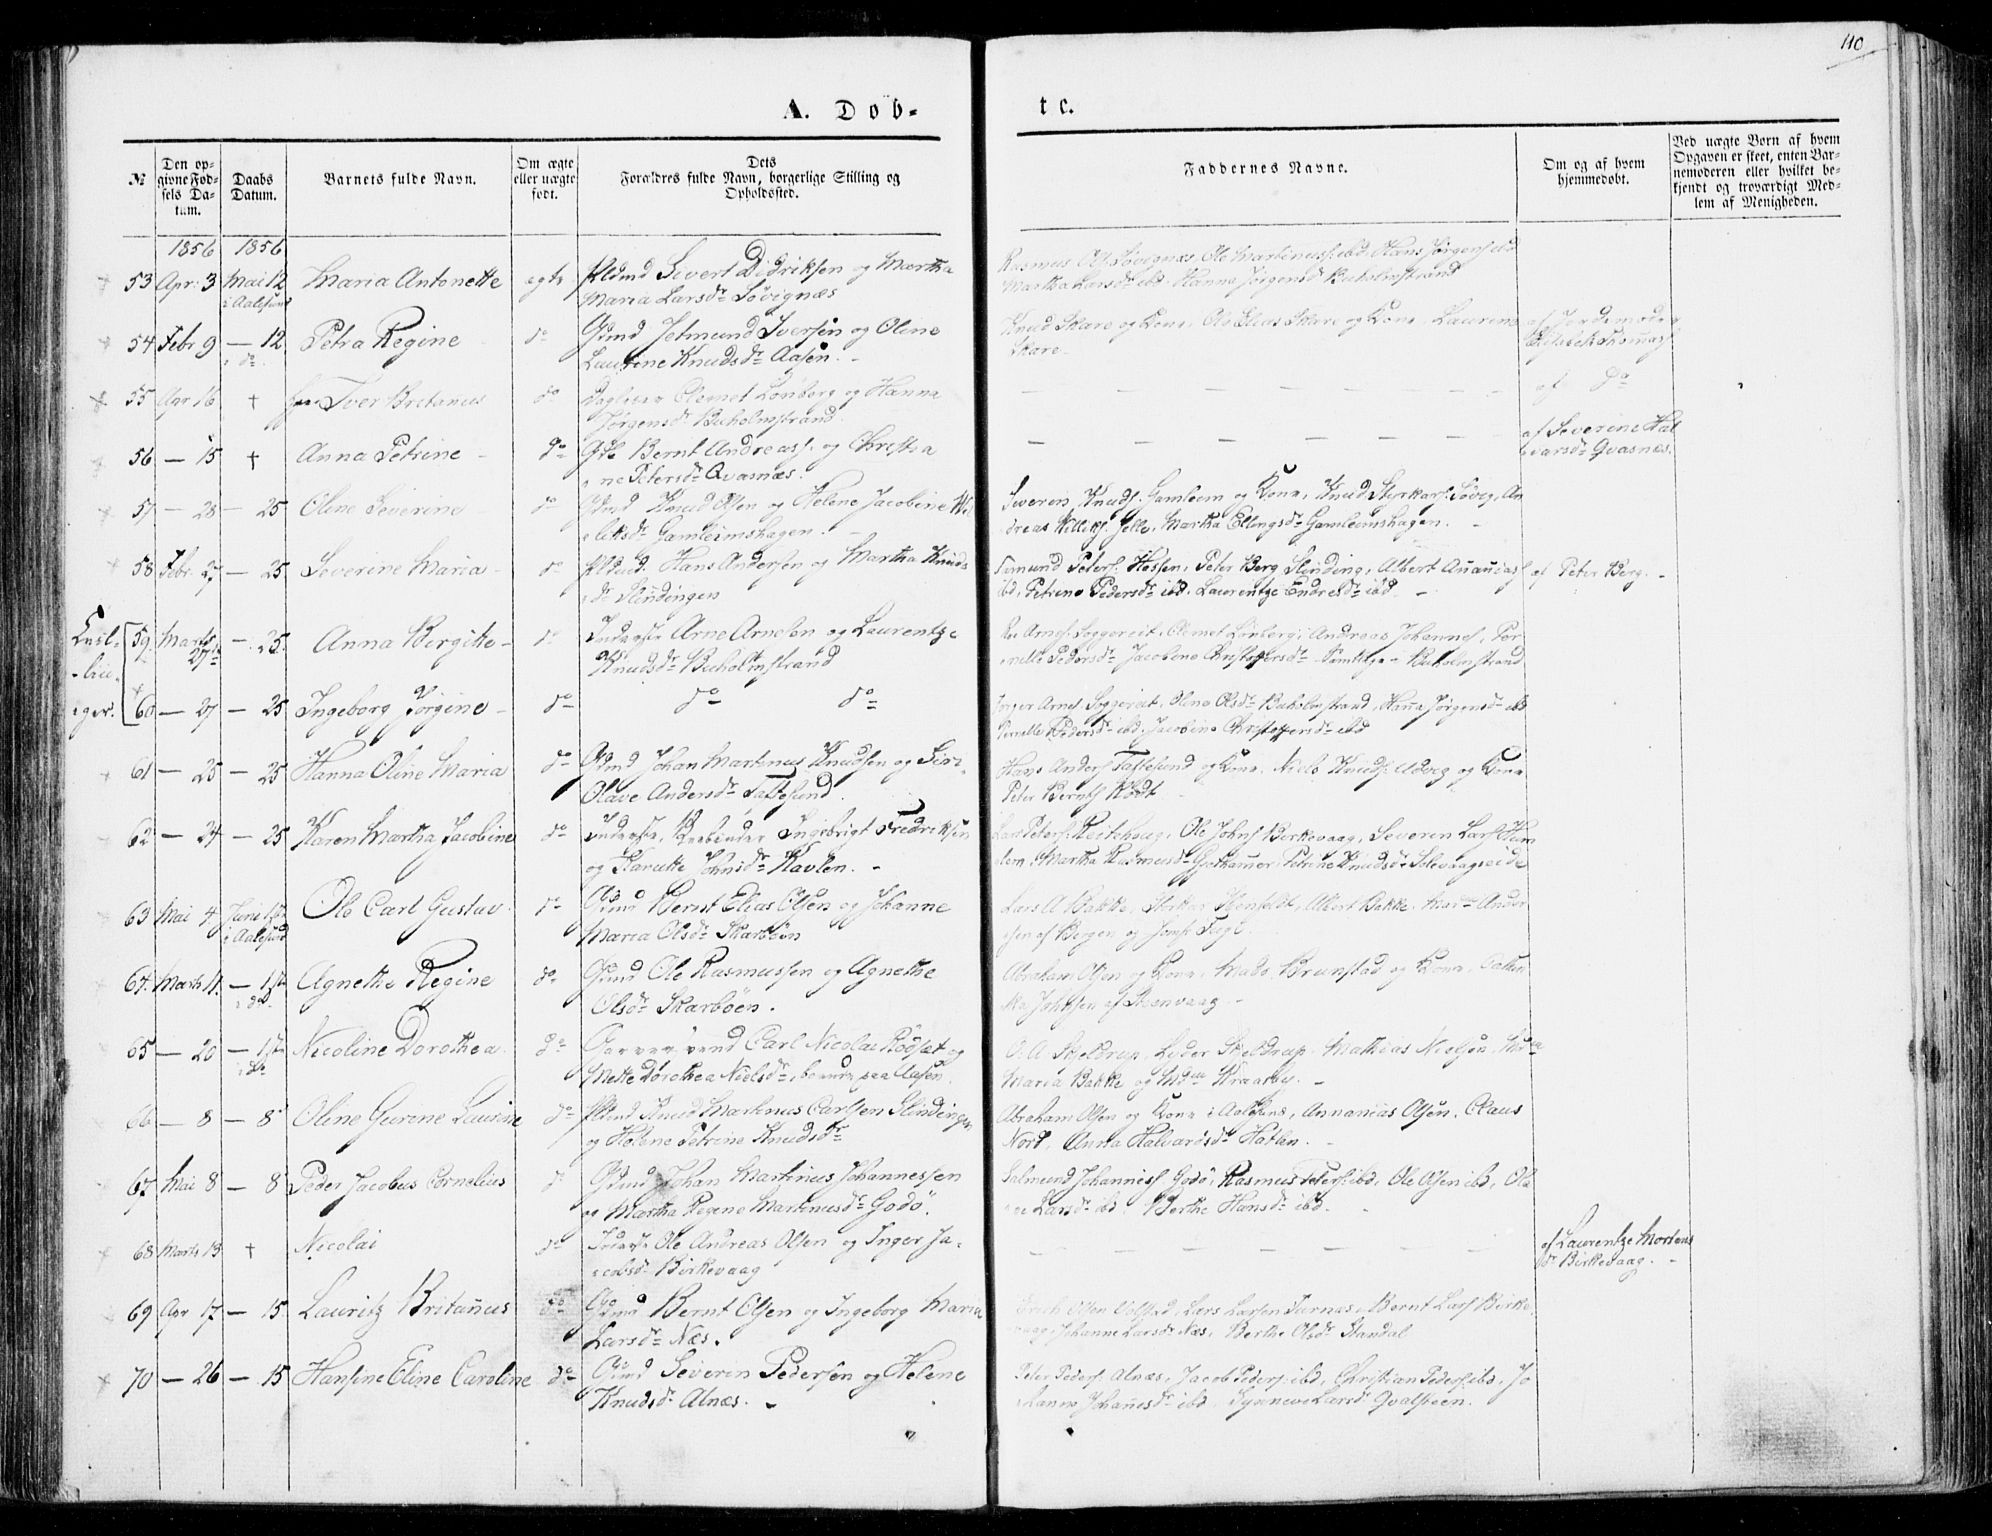 110
A. Døb-
te.
№
Den op-
givne Fød-
sels Da-
tum.
Daabs
Datum.
Barnets fulde Navn.
Om ægte
eller uægte
født.
Dets
Forældres fulde Navn, borgerlige Stilling og
Opholdssted.
Faddernes Navne.
Om og af hvem
hjemmedøbt.
Ved uægte Børn af hvem
Opgaven er skeet, enten Bar-
nemoderen eller hvilket be-
kjendt og troværdigt Med-
lem af Menigheden.
1856 1856
53 Apr. 3 Mai 12 Maria Antonette egte Sivert Didriksen og Martha
i Aalesund Maria Larsdr Søvignæs
Rasmus Søvignæs, Ole Martinuss. ibd, Hans Jørgens. ibd
Martha Larsdr ibd. Hanna Jørgensdr Buholmstrand
54 Febr 9 — 12 Petra Regine do Gmd Jetmund Iversen og Oline
do Laurine Knudsdr Aasen. -
Knud Skare og Kone, Ole Elias Skare og Kone, Laurine
Skare.
af Jordemoder
55 Apr 16 † Iver Britanus do Clemet Lønberg og Hanna
Jørgensdr Buholmstrand
— — — — — — — af do
56 — 15 † Anna Petrine do Bernt Andreass. og Christia
ne Petersdr Qvasnæs.
— — — — — — af Severine Hal
varsdr Qvasnæs.
57 — 28 — 25 Oline Severine do Gmd Knud Olsen og Helene Jacobine Wil
leksdr Gamleimshagen.
Severin Knuds. Gamleim og Kone, Knud Styrkars. Søvig, An
dreas Willeks. Martha Ellingsdr Gamleimshagen.
58 Febr. 27 — 25 Severine Maria do Hans Andersen og Martha Knuds
dr Slindingen
Peters. Hessen, Peter Berg Slinding, Albert Ananias
ibd, Petrine Pedersdr ibd. Laurentze Endresdr ibd.
af Peter Berg. -
59 Marts — 25. Anna Birgitte do Inderste Arne Arnesen og Laurentze
27 Knudsdr Buholmstrand
Arnes. Soggereit, Clemet Lønberg, Andreas Johannes., Per
nelle Pedersdr Jacobine Christoffersdr Samtlige Buholmstrand
60 — 27 — 25 Ingeborg Jørgine do do do
Arnes. Soggereit, Oline Olsdr Buholmstrand, Hanna Jørgensdr ibd
Pernelle Pedersdr ibd. Jacobine Christoffersdr ibd
61 — 25 — 25 Hanna Oline Maria do Gmd Johan Martinus Knudsen og Siri
Olave Andersdr Taftesund
Hans Anders. Taftesund og Kone, Niels Knuds. Udvig og Kone
Peter Bernts.
62 — 24 — 25 Karen Martha Jacobine do Inderste, Ingebrigt Fredriksen
og Johnsdr Havlen. -
Lars Peters. Reitehoug, Ole Johns. Birkevaag, Severin Lars.
Martha Rasmusdr Petrine Knudsdr Solevaagseide
63 Mai 4 Juni 1ste Ole Carl Gustav do Gmd Bernt Elias Olsen og Johanne
i Aalesund Maria Olsdr Skarbøen
Lars A Bakke, Albert Bakke, Ander
sen af Bergen og
64. Marts 11. — 1ste Agnethe Regine do Gmd Ole Rasmussen og Agnethe
do Olsdr Skarbøen.
Abraham Olsen og Kone, Mads Brunstad og Kone,
Johnsen af Steenvaag
65 — 20 — 1ste Nicoline Dorothea do Carl Nicolai Rødsæt og
do Mette Dorothea Nielsdr, boende paa Aasen
O. A. Skjeldrup, Lyder Skjeldrup, Mathias Nielsen,
Maria Bakke og Kraakø. -
66 — 8 — 8 Oline Gurine Laurine do Knud Martinus Carlsen Slindingen
og Helene Petrine Knudsdr
Abraham Olsen og Kone i Aalesund, Annanias Olsen, Claus
Nord, Anna Halvardsdr Hatlen.
67 Mai 8 — 8 Peder Jacobus Cornelius do Gmd Johan Martinus Johannessen
og Martha Regine Martinusdr Godø.
Salmund Johanness. Godø, Rasmus Peters. ibd, Ole Olsen ibd, Ola
Larsdr ibd. Berthe Hansdr ibd.
68 Marts 13 † Nicolai do Inderste Ole Andreas Olsen og Inger Ja-
cobsdr Birkevaag
— — — — — — af Laurentze Mortens
dr Birkevaag. -
69 Apr 17 — 15 Lauritz Britanus do Gmd Bernt Olsen og Ingeborg Maria
Larsdr Næs.
Olsen Lars Larsen Furnæs, Bernt Lars. Birke
vaag, Johanne Larsdr Næs, Berthe Olsdr Standal
70 — 26 — 15 Hansine Eline Caroline do Gmd Severin Pedersen og Helene
Knudsdr Alnæs.
Peter Peders. Alnæs, Jacob Peders. ibd, Christian Peders. ibd, Jo
hanne Johansdr ibd. Synneve Larsdr Qvalsteen.